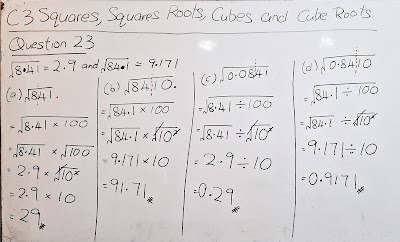 C3 Squares, Squares Roots, Cubes and Cube Roots
Question 23
√8.41 = 2.9 and √84.1 = 9.171
(a) √841.
= √8.41 × 100
= √8.41 × √100
= 2.9 × √10²
= 2.9 × 10
= 29
(b) √8410.
= √8.41 × 100
= √84.1 × √10²
= 9.171 × 10
= 91.71
(c) √0.0841
= √8.41 ÷ 100
= √8.41 ÷ √10²
= 2.9 ÷ 10
= 0.29
(d) √0.8410
= √84.1 ÷ 100
= √84.1 ÷ √10²
= 9.171 ÷ 10
= 0.9171